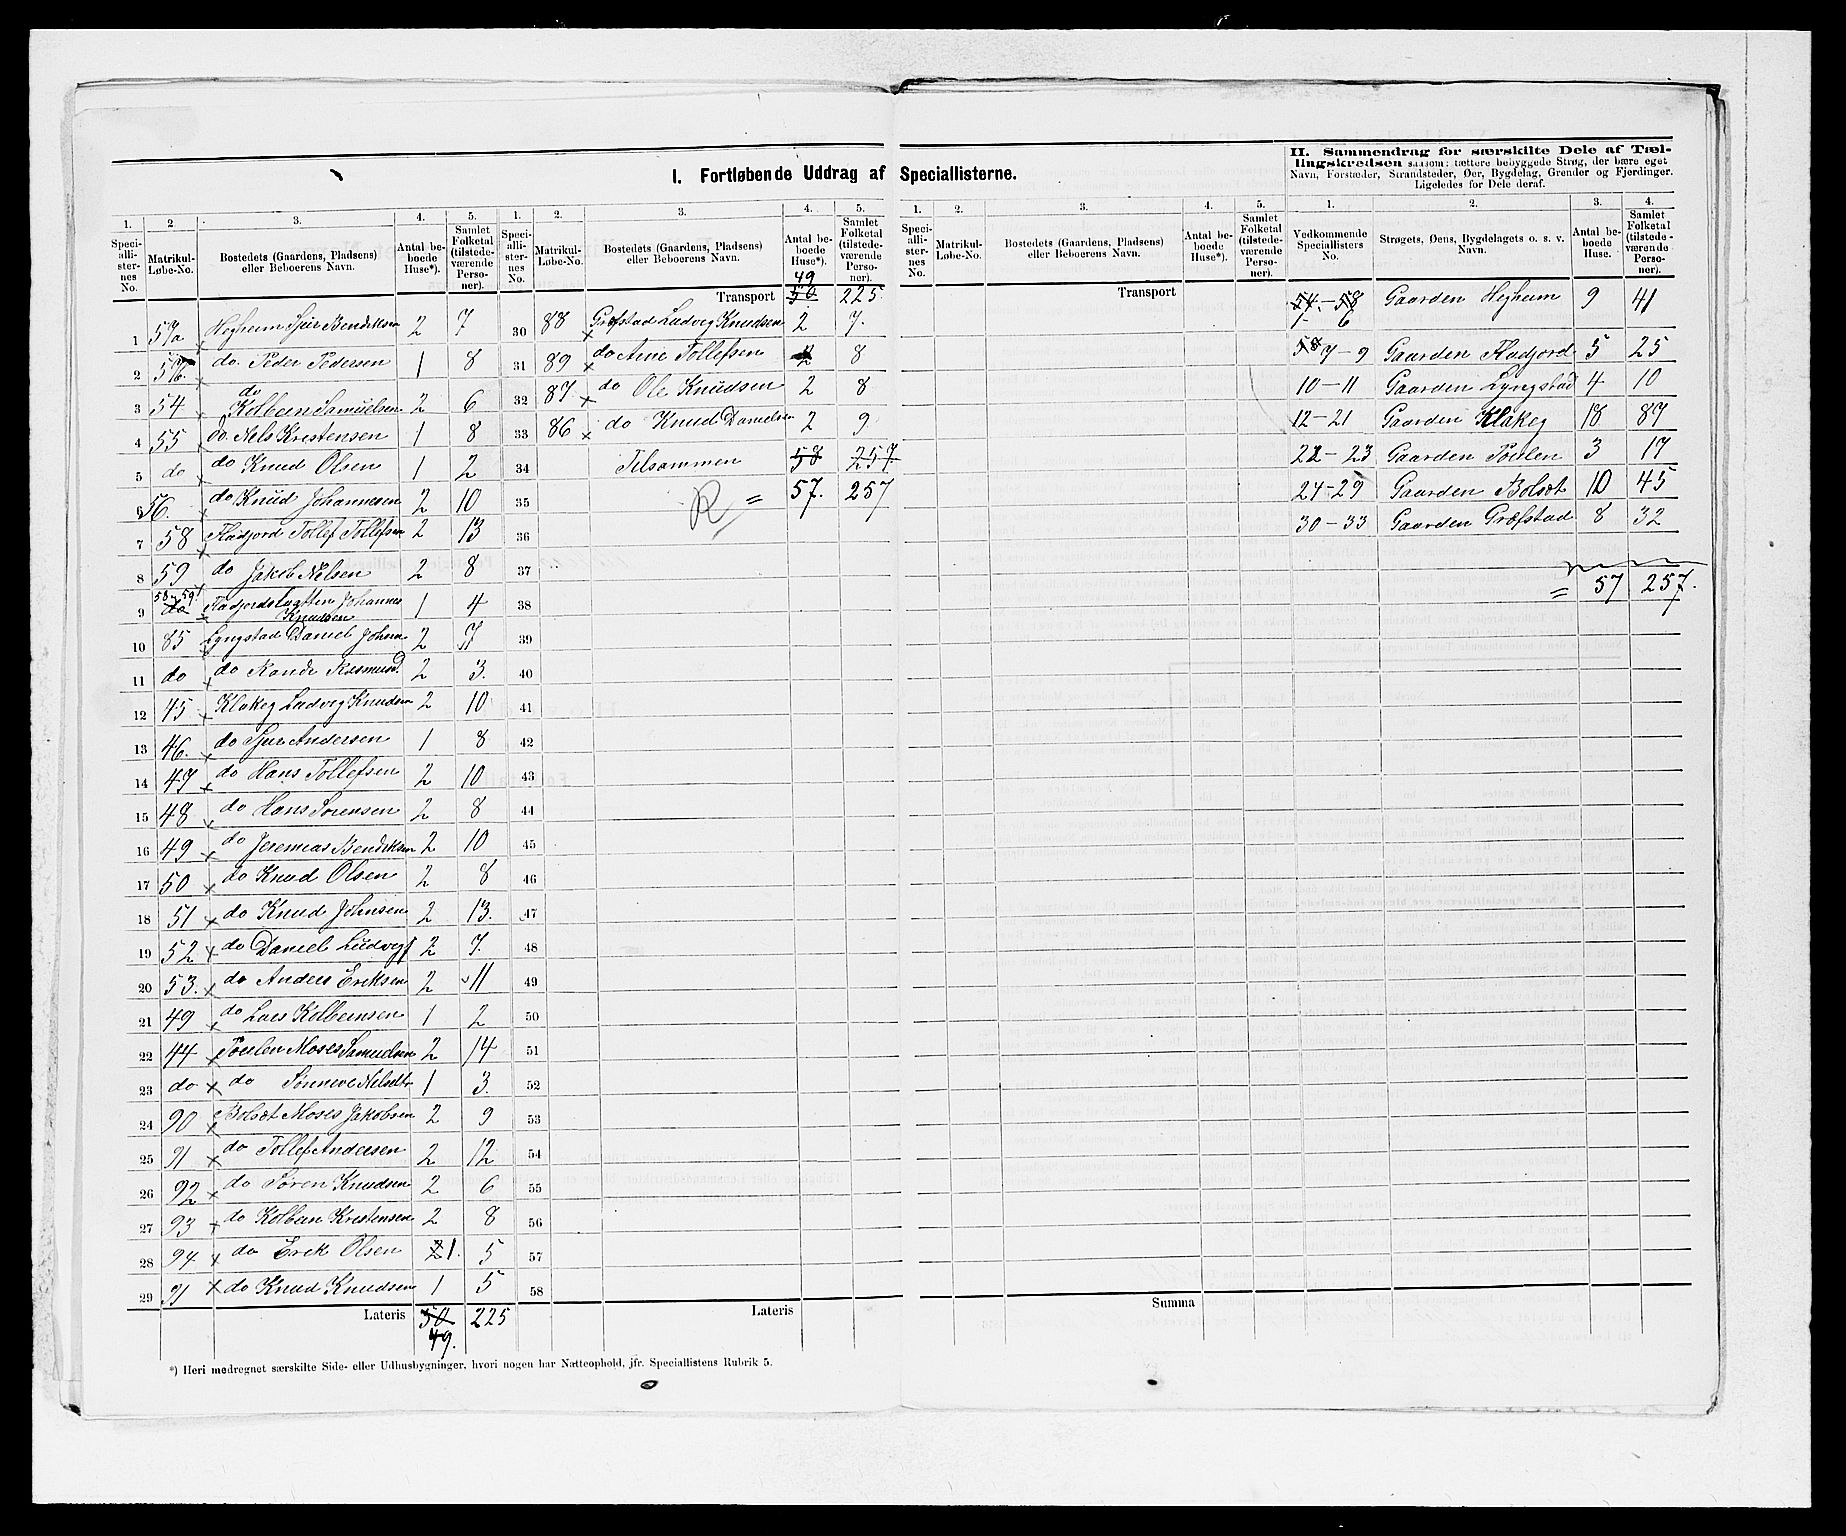 I. Fortløbende Uddrag af Speciallisterne.
II. Sammendrag for særskilte Dele af Tæl-
lingskredsen saasom: tættere bebyggede Strøg, der bære eget
Navn, Forstæder, Strandsteder, Øer, Bygdelag, Grender og Fjerdinger.
Ligeledes for Dele deraf.
1. 2. 3. 4. 5. 1. 2. 3. 4. 5. 1. 2. 3. 4. 5. 1. 2. 3. 4.
Speciallisternes No. Matrikul-Løbe-No. Bostedets (Gaardens, Pladsens) eller Beboerens Navn. Antal beboede Huse*). Samlet Folketal (tilstedeværende Personer).
Speciallisternes No. Matrikul-Løbe-No. Bostedets (Gaardens, Pladsens) eller Beboerens Navn. Antal beboede Huse*). Samlet Folketal (tilstedeværende Personer).
Speciallisternes No. Matrikul-Løbe-No. Bostedets (Gaardens, Pladsens) eller Beboerens Navn. Antal beboede Huse*). Samlet Folketal (tilstedeværende Personer).
Vedkommende Speciallisters No. Strøgets, Øens, Bygdelagets o. s. v. Navn. Antal beboede Huse. Samlet Folketal (tilstedeværende Personer).
1 57a Hegheim Sjur Bendiksen 2 7
2 57b. do. Peder Pedersen 1 8
3 54 do Kolbein Samuelsen 2 6
4 55 do. Nels Krestensen 1 8
5 do do Knud Olsen 1 2
6 56. do Knud Johannesen 2 10
7 58 Fladjord Tollef Tollefsen 2 13
8 59 do Jakob Nelsen 2 8
9 58-59 do Fladjordslugtten Johannes Knudsen 1 4
10 85 Lyngstad Daniel Johns 2 7
11 do do Rande Rasmusd. 2 3.
12 45 Klakeg Ludvig Knudsen 2 10
13 46. do Sjur Andersen 1 8
14 47 do Hans Tollefsen 2 10
15 48 do Hans Sørensen 2 8
16 49 do Jeremias Bendiksen 2 10
17 50 do Knud Olsen 2 8
18 51 do Knud Johnsen 2 13.
19 52 do Daniel Ludvigs 2 7.
20 53. do Anders Eriksen 2 11
21 49 do Lars Kolbeinsen 1 2
22 44 Føulen Moses Samuelsen 2 14
23 do do Sønneve Nelsdtr 1 3.
24 90 Bolsæt Moses Jakobsen 2 9
25 91 do Tollef Andersen 2 12
26 92 do Søren Knudsen 2 6
27 93 do Kolbein Krestensen 2 8
28 94 do Erek Olsen 2 1. 5
29 91 do Knud Knudsen 1 5
Lateris 50 225
49.
Transport 50 49 225.
30 88 Græfstad Ludvig Knudsen 2 7.
31 89 do Arne Tollefsen 2 8
32 87. do Ole Knudsen 2 8
33 86 do Knud Danielsen 2 9
34 Tilsammen 58 257
35 R = 57. 257
36
37
38
39
40
41
42
43
44
45
46
47
48
49
50
51
52
53
54
55
56
57
58
Lateris
Transport
Summa
54-58 1-6 Gaarden Hegheim 9 41
58 7-9 Gaarden Fladjord 5 25
10-11 Gaarden Lyngstad 4 10
12-21 Gaarden Klakeg 18 87
22-23 Gaarden Føulen 3 17
24-29 Gaarden Bolsæt 10 45
30-33 Gaarden Græfstad 8 32
= 57 257.
*) Heri medregnet særskilte Side- eller Udhusbygninger, hvori nogen har Natteophold, jfr. Speciallistens Rubrik 5.